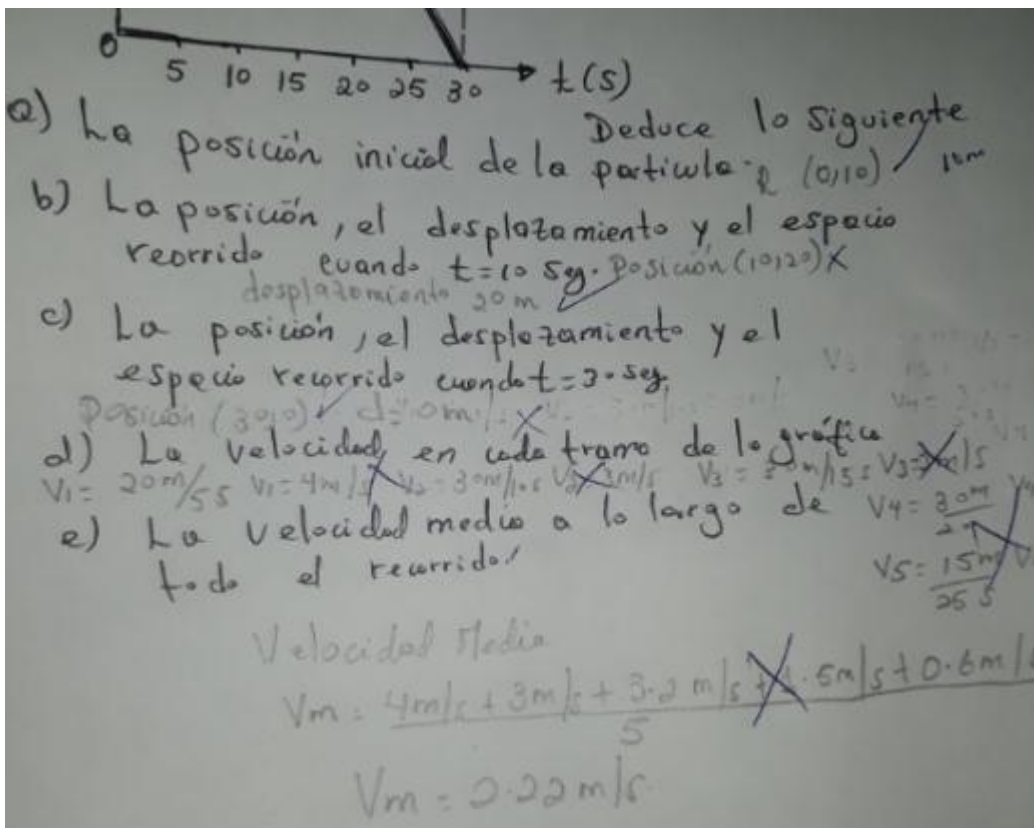 0 5 10 15 20 25 30 t(s)
Deduce lo siguiente
a) La posición inicial de la particula. (0,10) 10m
b) La posición, el desplazamiento y el espacio
reorrido cuando t=10 Seg. Posición (10,20) X
desplazamiento 20m
c) La posición, el desplazamiento y el
espacio recorrido cuando t=30 seg.
Posición (30,0) d=0m
d) La velocidad en cada tramo de la gráfica
V1= 20m/5s V1=4m/s V2=30m/10s V3 =
V4= 30m
e) La velocidad media a lo largo de
todo el recorrido
V5= 15m/25s
Velocidad Media
Vm = 4m/s + 3m/s + 3.2 m/s + .5m/s + 0.6m/s
5
Vm = 2.22 m/s